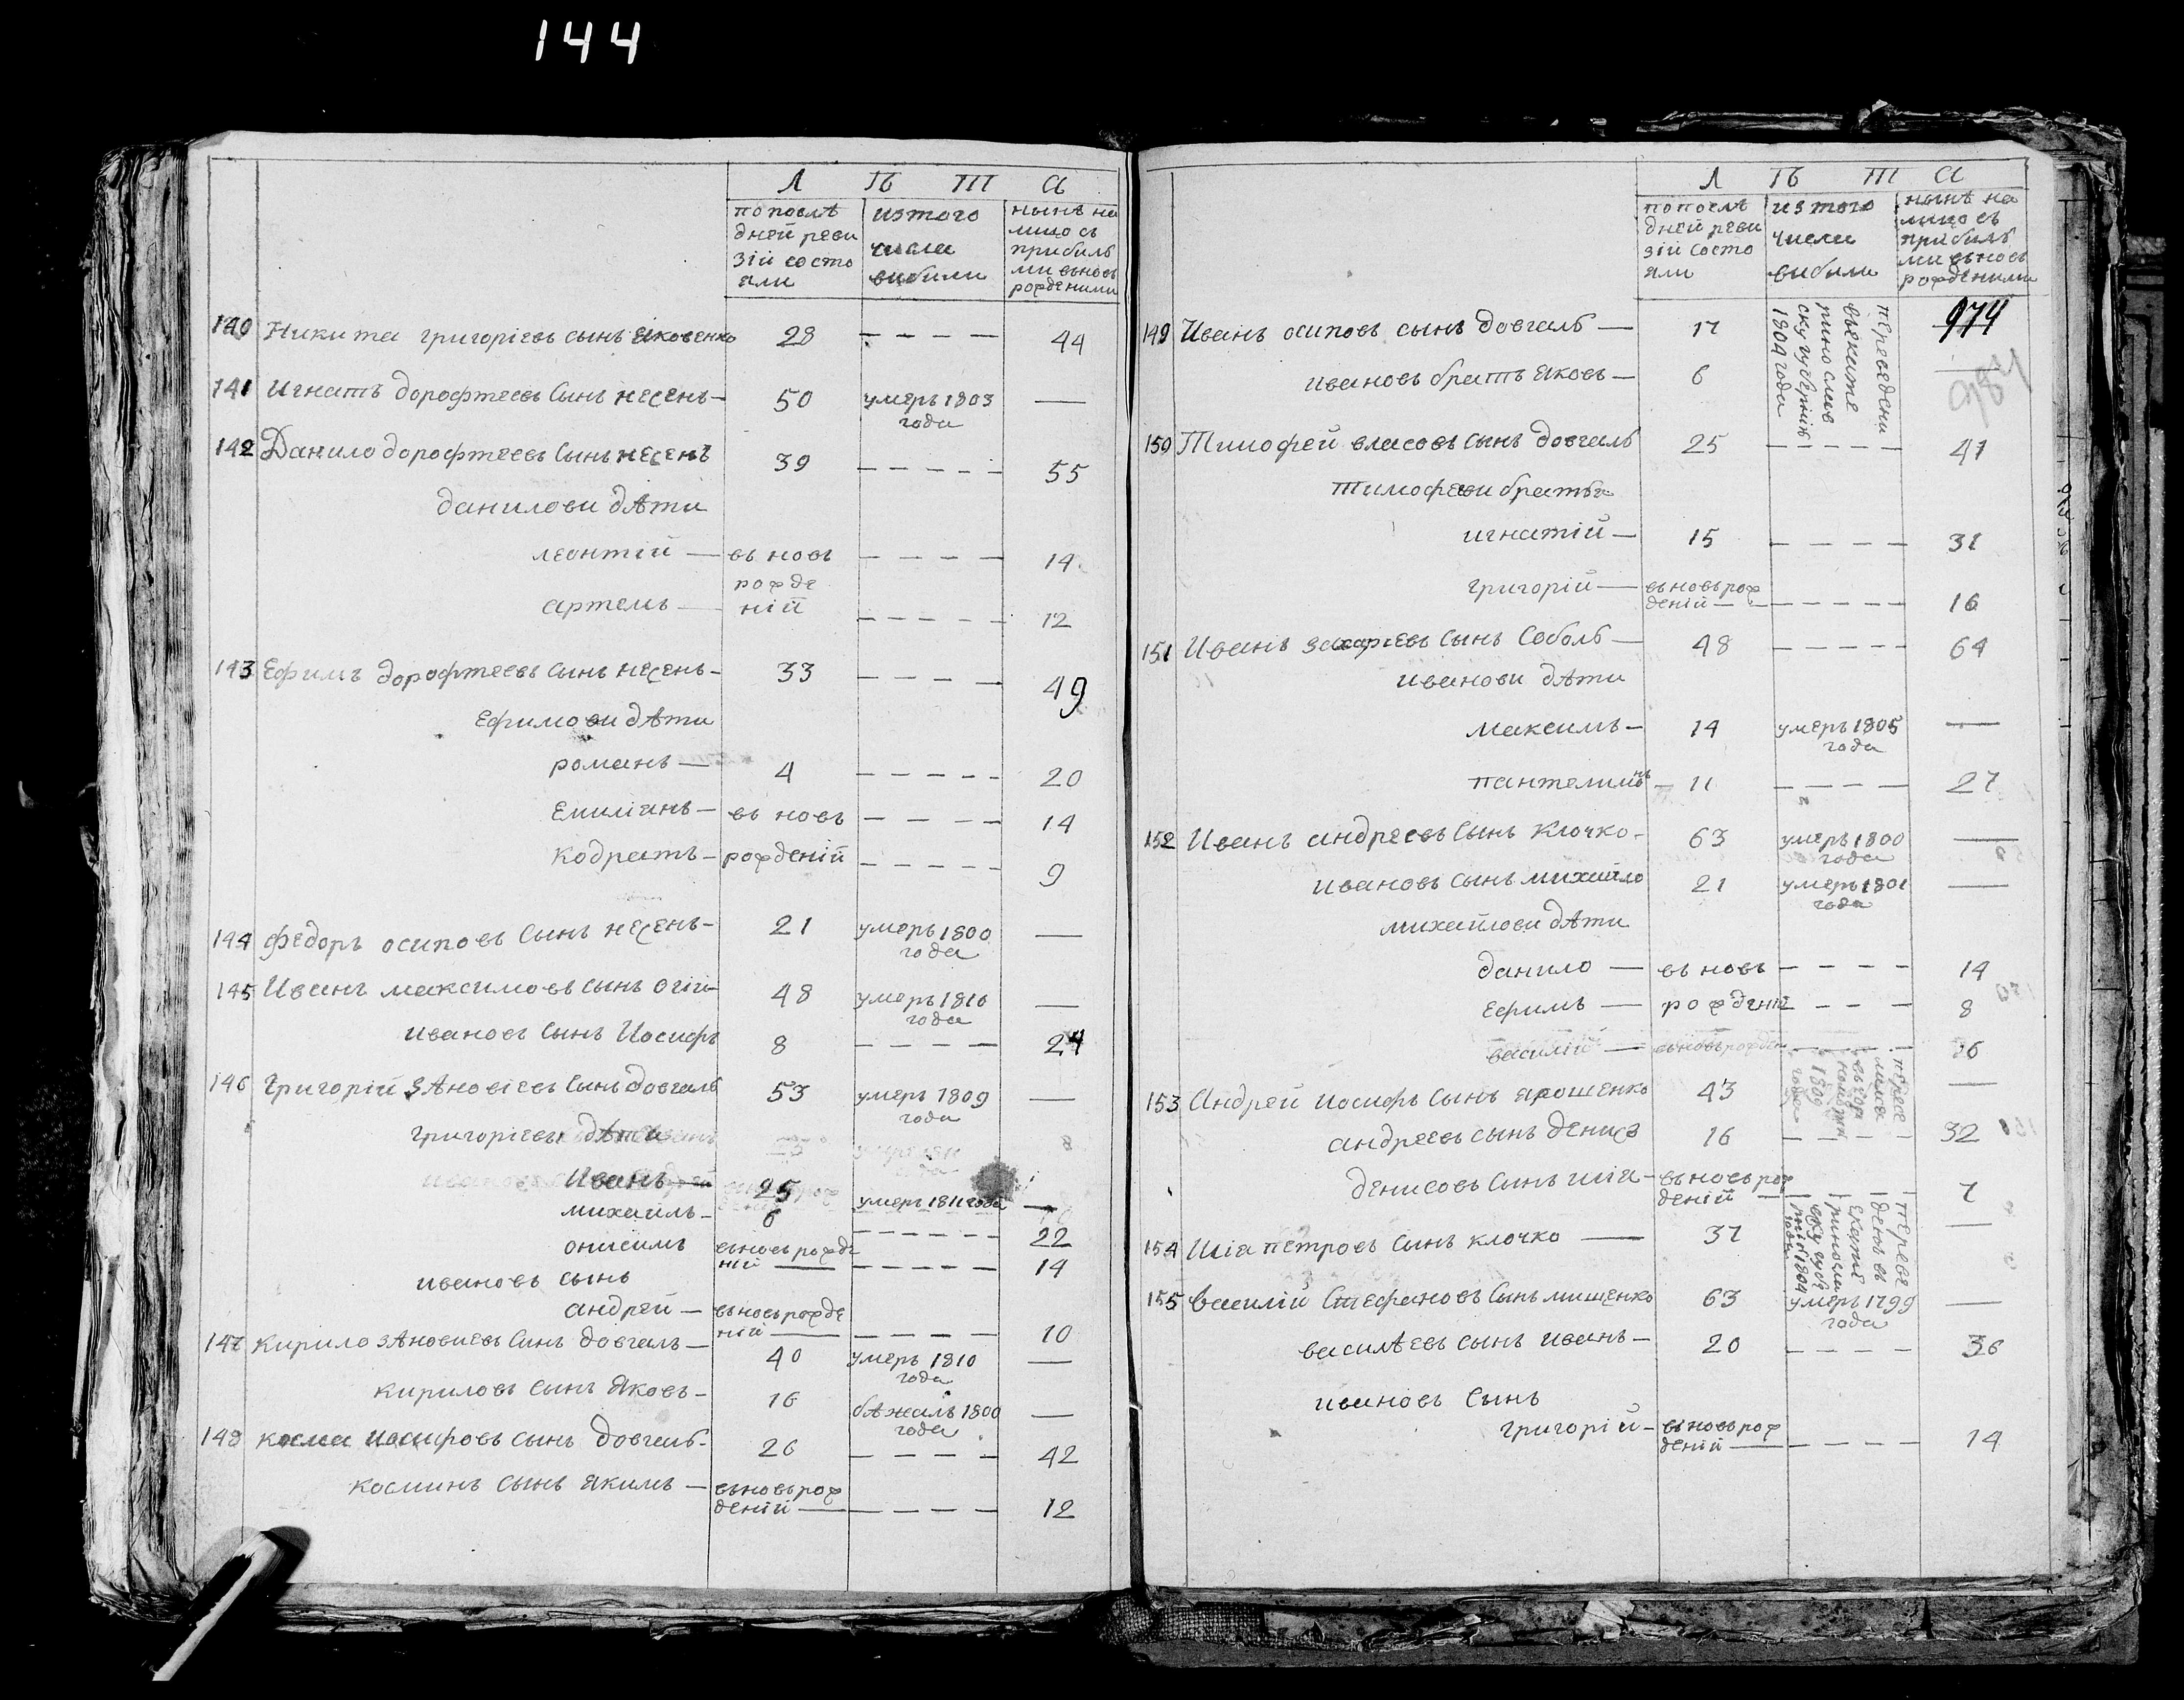 144
Л Ѣ Т А
по послѣ дней реви зїй состо яли
изъ того числа выбыли
нынѣ на лицо съ прибылы ми вьновь рожденими
140 Никита григорїевъ сынъ Яковенко 28 — — — — 44
141 Игнатъ дорофтеевъ сынъ несень — 50 умеръ 1803 года —
142 Данило дорофтеевъ сынъ несенъ 39 — — — — — 55
данилови дѣти
леонтїй — вь новь — — — — 14
рожде
артемъ — нїй — — — — — 12
143 Ефимъ дорофтеевъ сынъ несень — 33 — — — — 49
Ефимови дѣти
романъ — 4 — — — — — 20
Емилїянъ — вь новь — — — — 14
кодратъ — рожденїй — — — — — 9
144 федоръ осиповъ сынъ несень — 21 умеръ 1800 года —
145 Иванъ максимовъ сынъ огїй 48 умеръ 1810 года —
ивановъ сынъ Иосифъ 8 — — — — 24
146 григорїй зѣновїевъ сынъ довгаль 53 умеръ 1809 года —
григорїеви дѣти
Иванъ — 25 умеръ 1811 года —
михаилъ — 6 — — — — — 22
онисимъ вьновь рожде нїй — — — — — — 14
ивановъ сынъ
андрей — вьновь рожде нїй — — — — — 10
147 кирило зѣновиевъ синъ довгаль — 40 умеръ 1810 года —
кириловъ сынъ Яковъ — 16 бѣжалъ 1800 года —
148 косма иосифовъ сынъ довгаль — 26 — — — — 42
косминъ сынъ якимъ — вьновь рож денїй — — — — — 12
Л Ѣ Т А
по послѣ дней реви зїй состо яли
изъ того числа выбыли
нынѣ на лицо съ прибылы ми вьновь рожденими
974
984
149 Иванъ осиповъ сынъ довгаль — 17 переведени въекате риносла скую губернїю 1804 года
ивановъ братъ яковъ — 6 —
150 Тимофей власовъ сынъ довгаль 25 — — — — — 41
тимофеови братья
игнатїй — 15 — — — — 31
григорїй — вьновь рож денїй — — — — — — 16
151 Иванъ захарїевъ сынъ соболь — 48 — — — — — 64
иванови дѣти
максимъ — 14 умеръ 1805 года —
пантелимонъ — 11 — — — — 27
152 Иванъ андреевъ сынъ клочко — 63 умеръ 1800 года —
ивановъ сынъ михайло 21 умеръ 1801 года —
михайлови дѣти
данило — вь новь — — — — 14
Ефимъ — рожденїй — — — 8
василїй — вьновь рожден — — — — 26
153 Андрей иосифъ сынъ ярошенко 43 1800 года —
андреевъ сынъ денисъ 16 — — — — 32
денисовъ сынъ илїя — вьновь рож денїй — — — — — 7
154 Илїя петровъ сынъ клочко — 37 переве денъ въ екате риносла скую губе рнїю 1804 года —
155 василїй Стефановъ сынъ мищенко 63 умеръ 1799 года —
василѣевъ сынъ иванъ — 20 — — — — 36
ивановъ сынъ
григорїй — вьновь рож денїй — — — — — 14